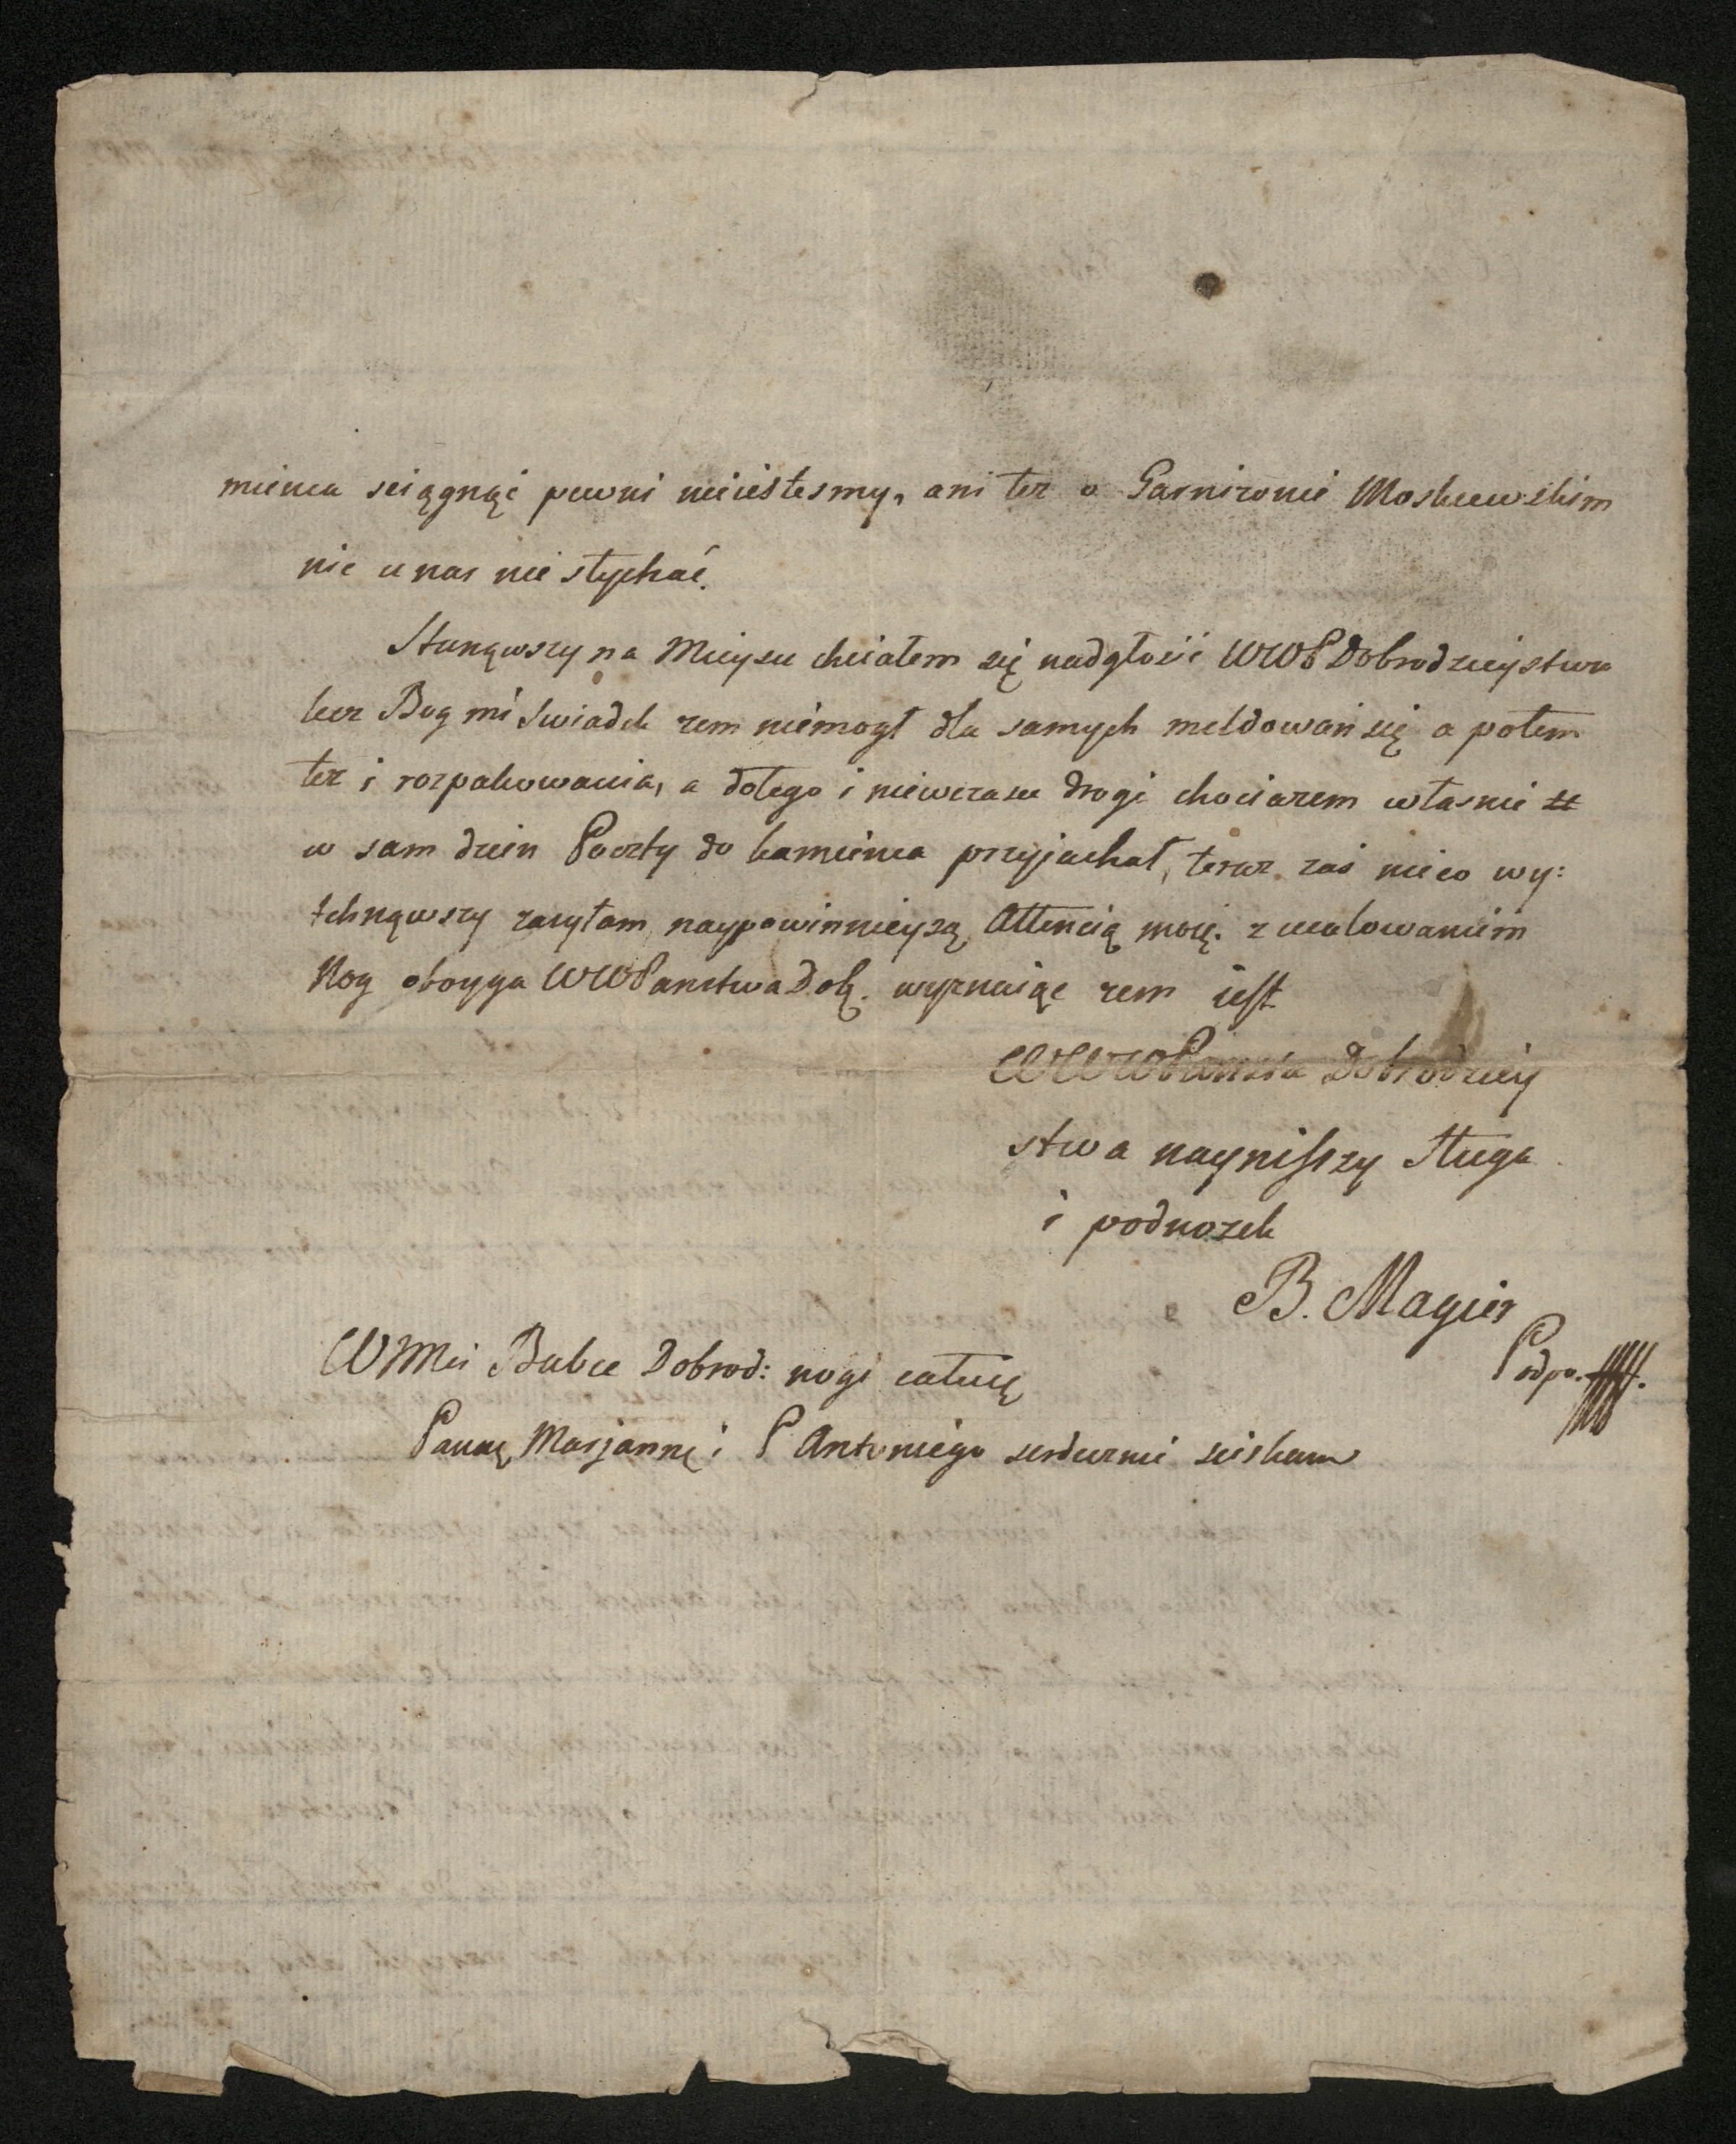 mienca sciągnąć pewni nieiestesmy, ani tez o Garnizonie Moskiewskim
nic u nas nie słychać.
Stanąwszy na Mieyscu chciałem się nadgłosić WWP Dobrodzieystwu
lecz Bog mi swiadek zem niemogł dla samych meldowań się a potem
tez i rozpakowania, a dotego i niewczasu drogi chociazem własnie
w sam dzien Poczty do kamienca przyjachał, teraz zaś nieco wy:
tchnąwszy zasyłam naypowinnieyszą Attencią moię. z ucałowaniem
Nog oboyga WWPanstwa Dob. wyznaiąc zem iest
WWWPanstwa Dobrodziey
stwa nayniszszy Sługa
i podnozek
B. Magier
Podpo.
WJMci Babce Dobrod: nogi całuię
Pannę Marjannę i P Antoniego serdecznie sciskam